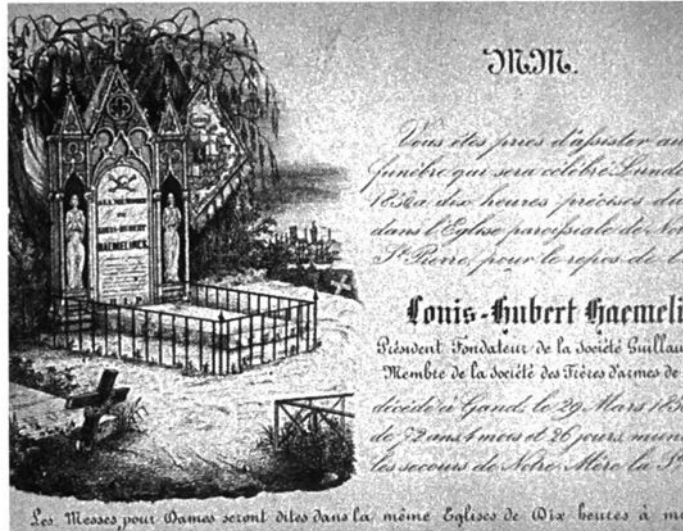 MM.
Vous êtes priés d'assister au
funèbre qui sera célébré Lund
à dix heures précises du
dans l'Eglise paroissiale de
St Pierre, pour le repos de l'
LOUIS-HUBERT
HAEMELINCK
Louis-Hubert Haemeli
Président Fondateur de la Société Guillau
Membre de la Société des Frères d'armes de
décédé à Gand, le 29 Mars
de 72 ans 4 mois et 26 jours, muni
les secours de Notre Mère la Ste
Les Messes pour Dames seront dites dans la même Eglises de Dix heures à